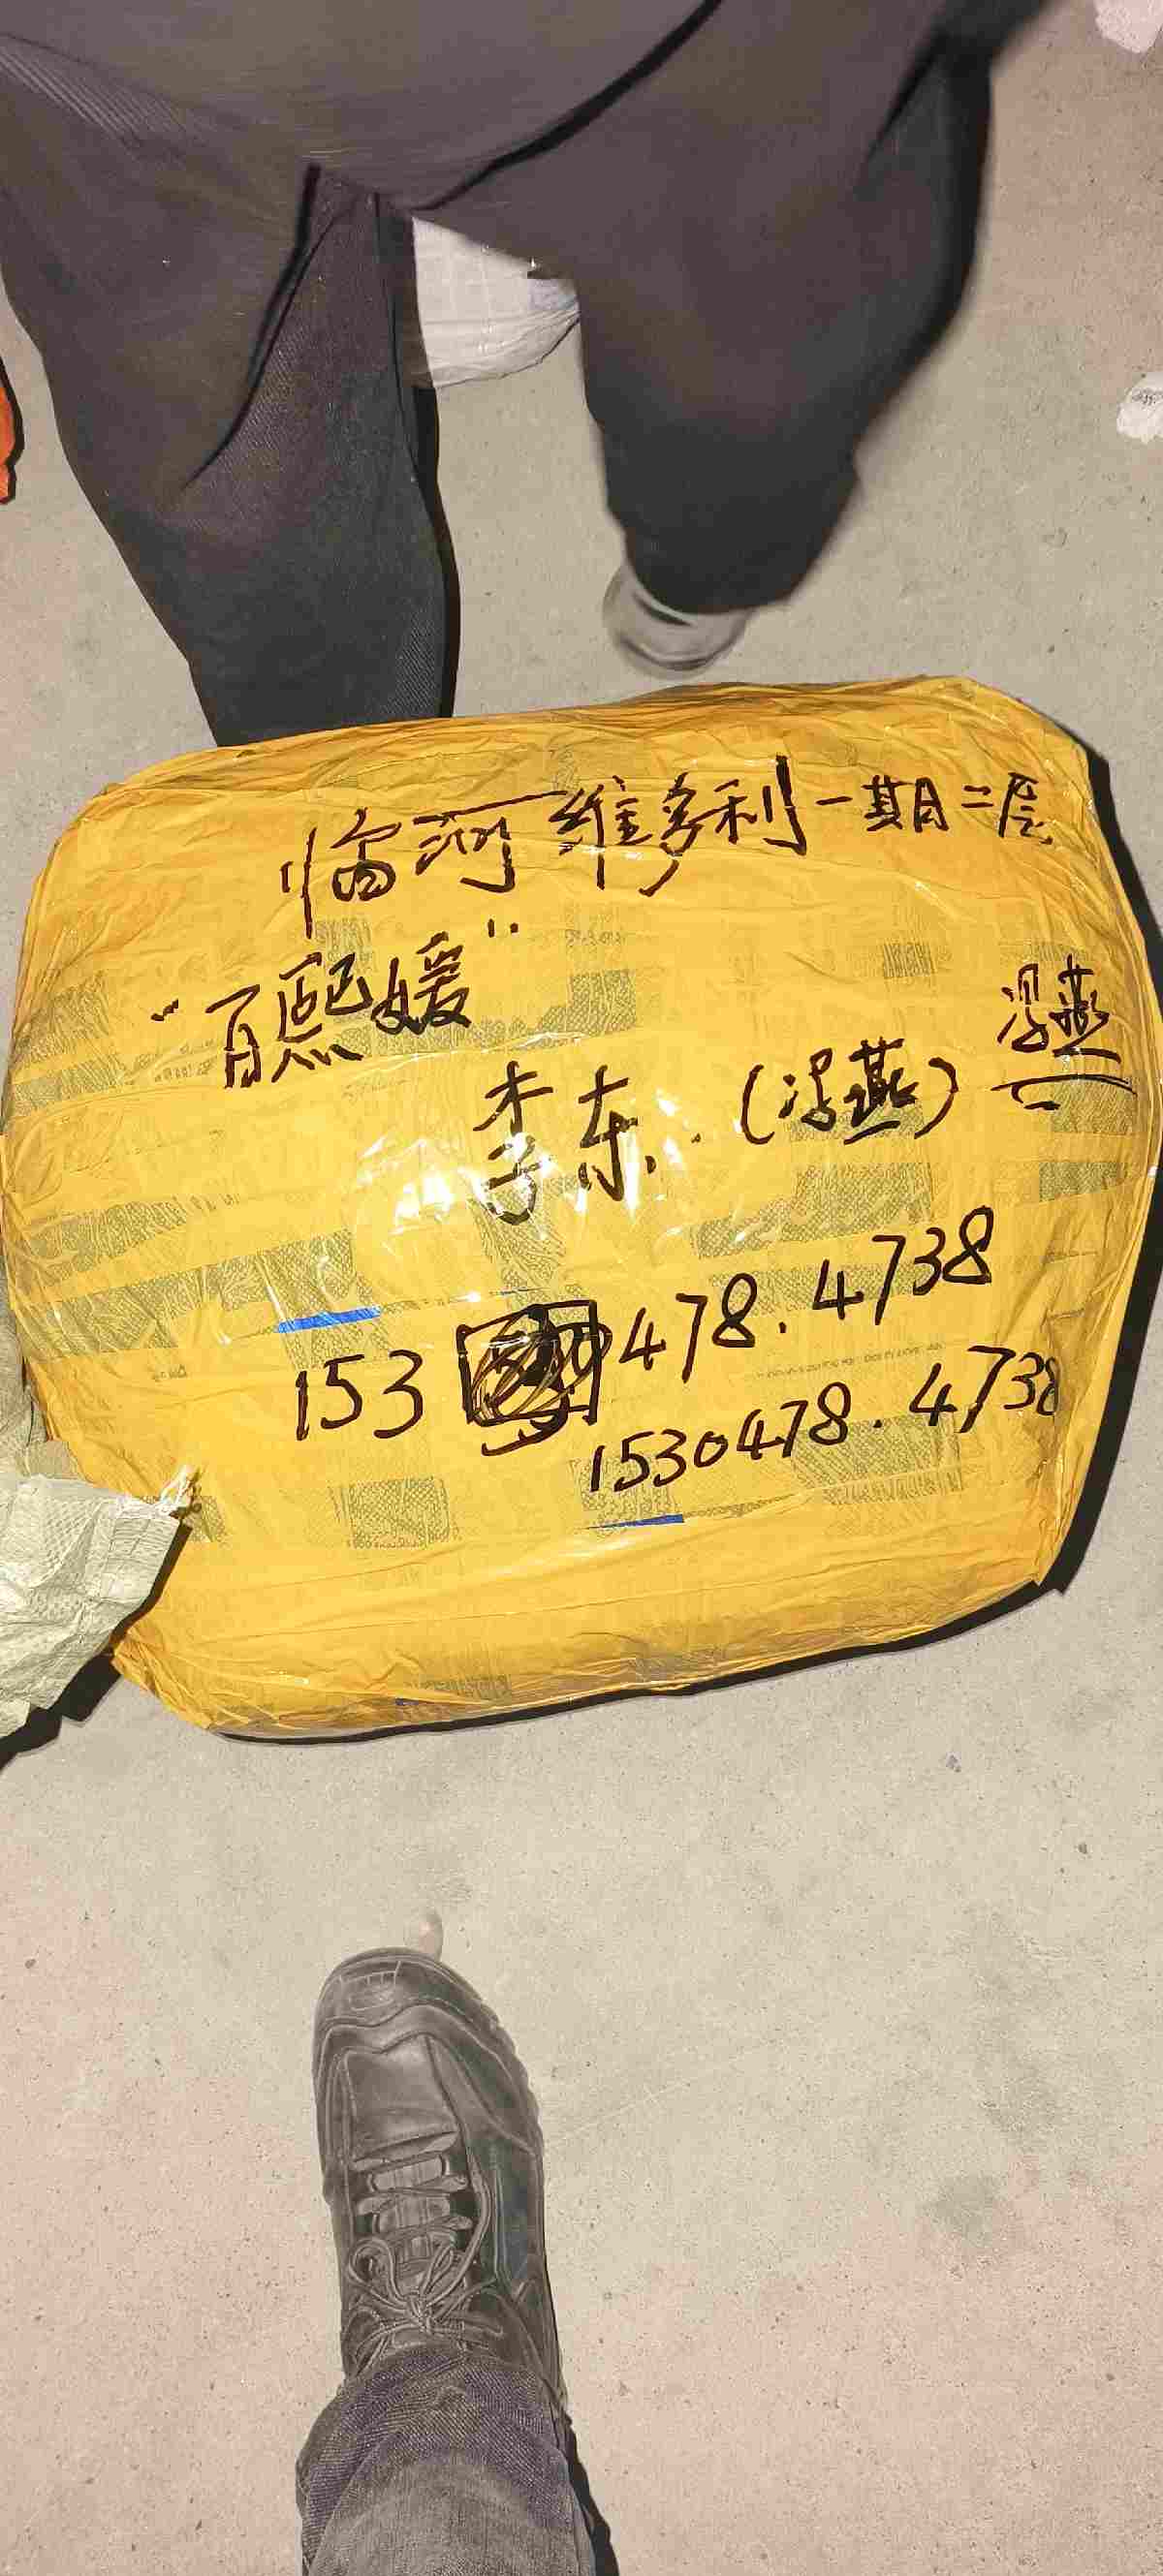 临河维多利一期二层
“百熙媛”
李东.(冯燕) 冯燕
153 0478.4738
1530478.4738